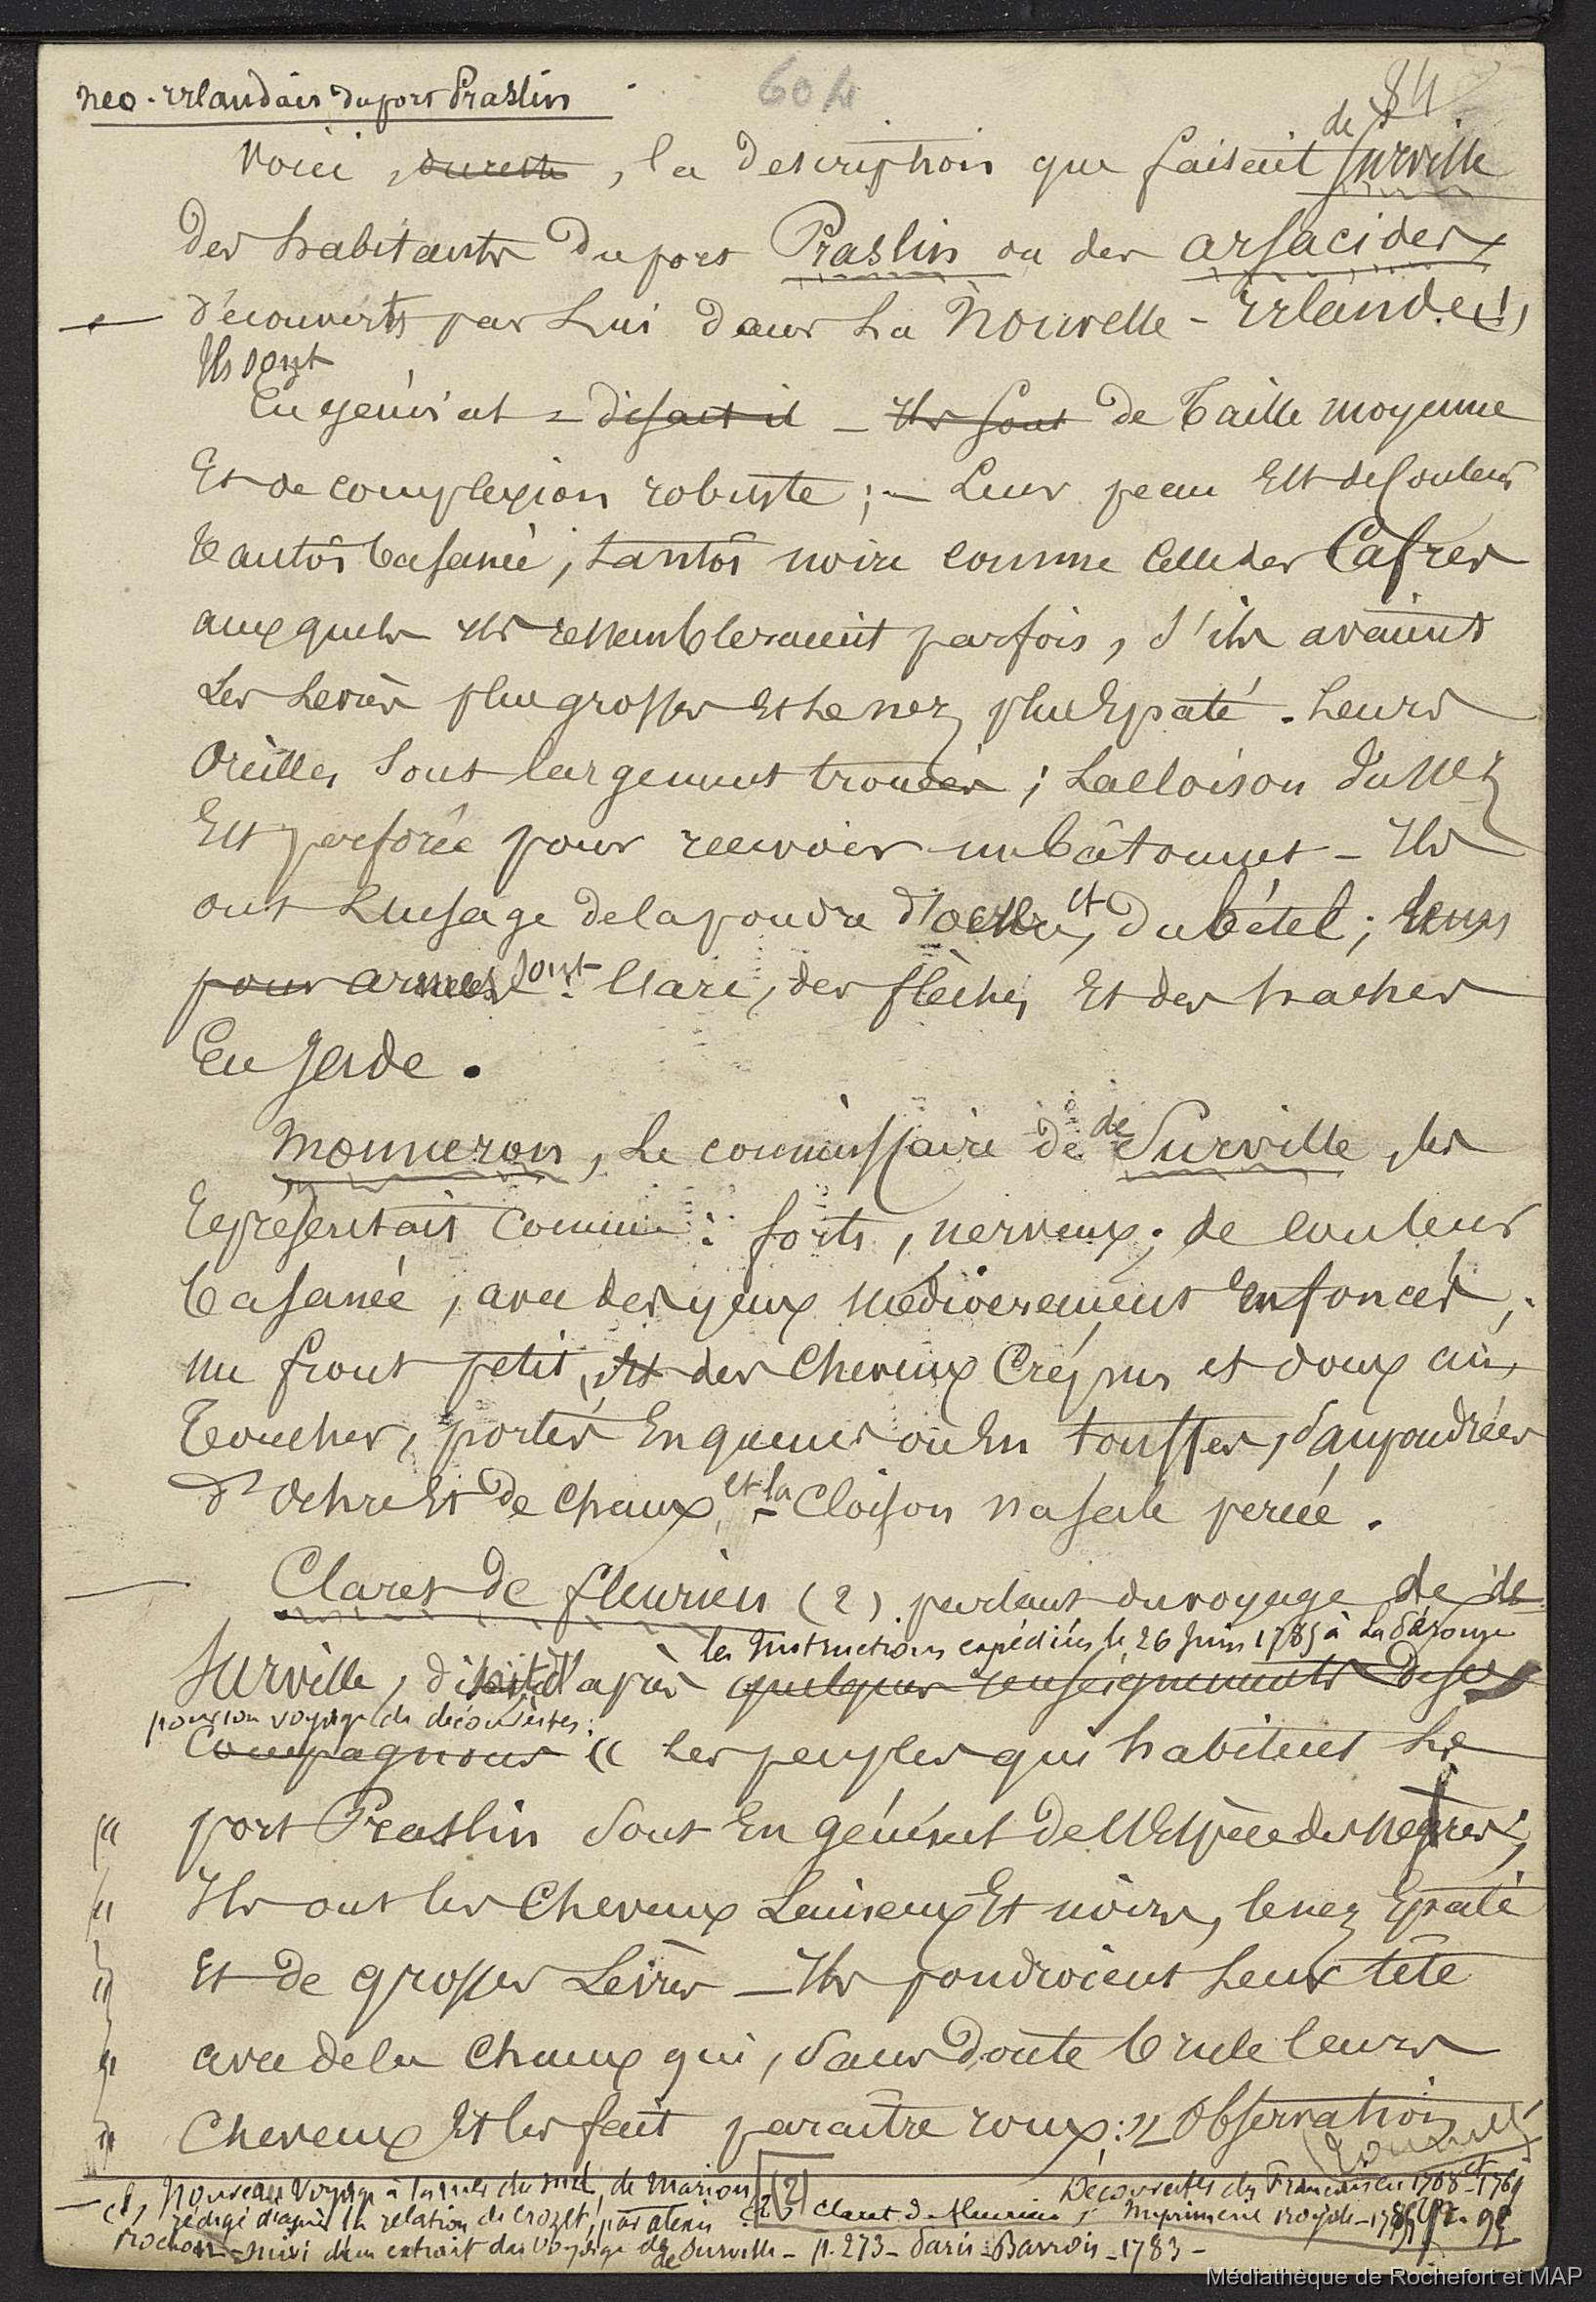 neo-irlandais du port Praslin
604
84
Voici, du reste, la description que faisait de Surville
des habitants du port Praslin ou des arsacides
découverts par Lui dans La Nouvelle-Irlande (1)
Ils sont
En général - disait il - Ils sont de Taille moyenne
Et de complexion robuste ; - Leur peau Est de Couleur
Tantôt basanée, tantôt noire comme Celle des Cafres
auxquels ils ressembleraient parfois, s'ils avaient
Les Lèvres plus grosses Et Le nez plus Epaté. Leurs
Oreilles sont largement trouées ; La cloison du nez
Est perforée pour recevoir un bâtonnet - Ils
ont L'usage de la poudre d'ocre, et du bétel ; leurs
pour armes sont : L'arc, des flèches Et des haches
En Jade.
Monneron, Le commissaire de de Surville, les
Représentait Comme : forts, nerveux ; de couleur
basanée, avec des yeux médiocrement enfoncés ;
un front petit, Et des Cheveux Crépus et doux au
Toucher, portés En queues ou En touffes, saupoudrées
d'ochre Et de Chaux, et la Cloison nasale percée.
Claret de fleurieu (2) parlant du voyage de de
Surville, disait d'après quelques renseignements de ses
les Instructions expédiées le 26 Juin 1785 à La Pérouse
pour son voyage de découvertes :
Compagnons « Les peuples qui habitent Le
« port Praslin sont En général de L'Espèce des Nègres ;
« Ils ont les Cheveux Laineux Et noirs, le nez Epaté
« Et de grosses Lèvres - Ils poudroient Leur tête
« avec de la Chaux qui, sans doute brule leurs
« Cheveux Et les fait paraître roux : » Observation
(1) Nouveau Voyage à la mer du Sud, de Marion
rédigé d'après la relation de Crozet, par
Rochon - suivi d'un extrait du Voyage de de Surville - p. 273 - Paris - Barrois - 1783 -
(2) Claret de fleurieu ; Découvertes des Français en 1768 et 1769
Imprimerie royale -
Médiathèque de Rochefort et MAP